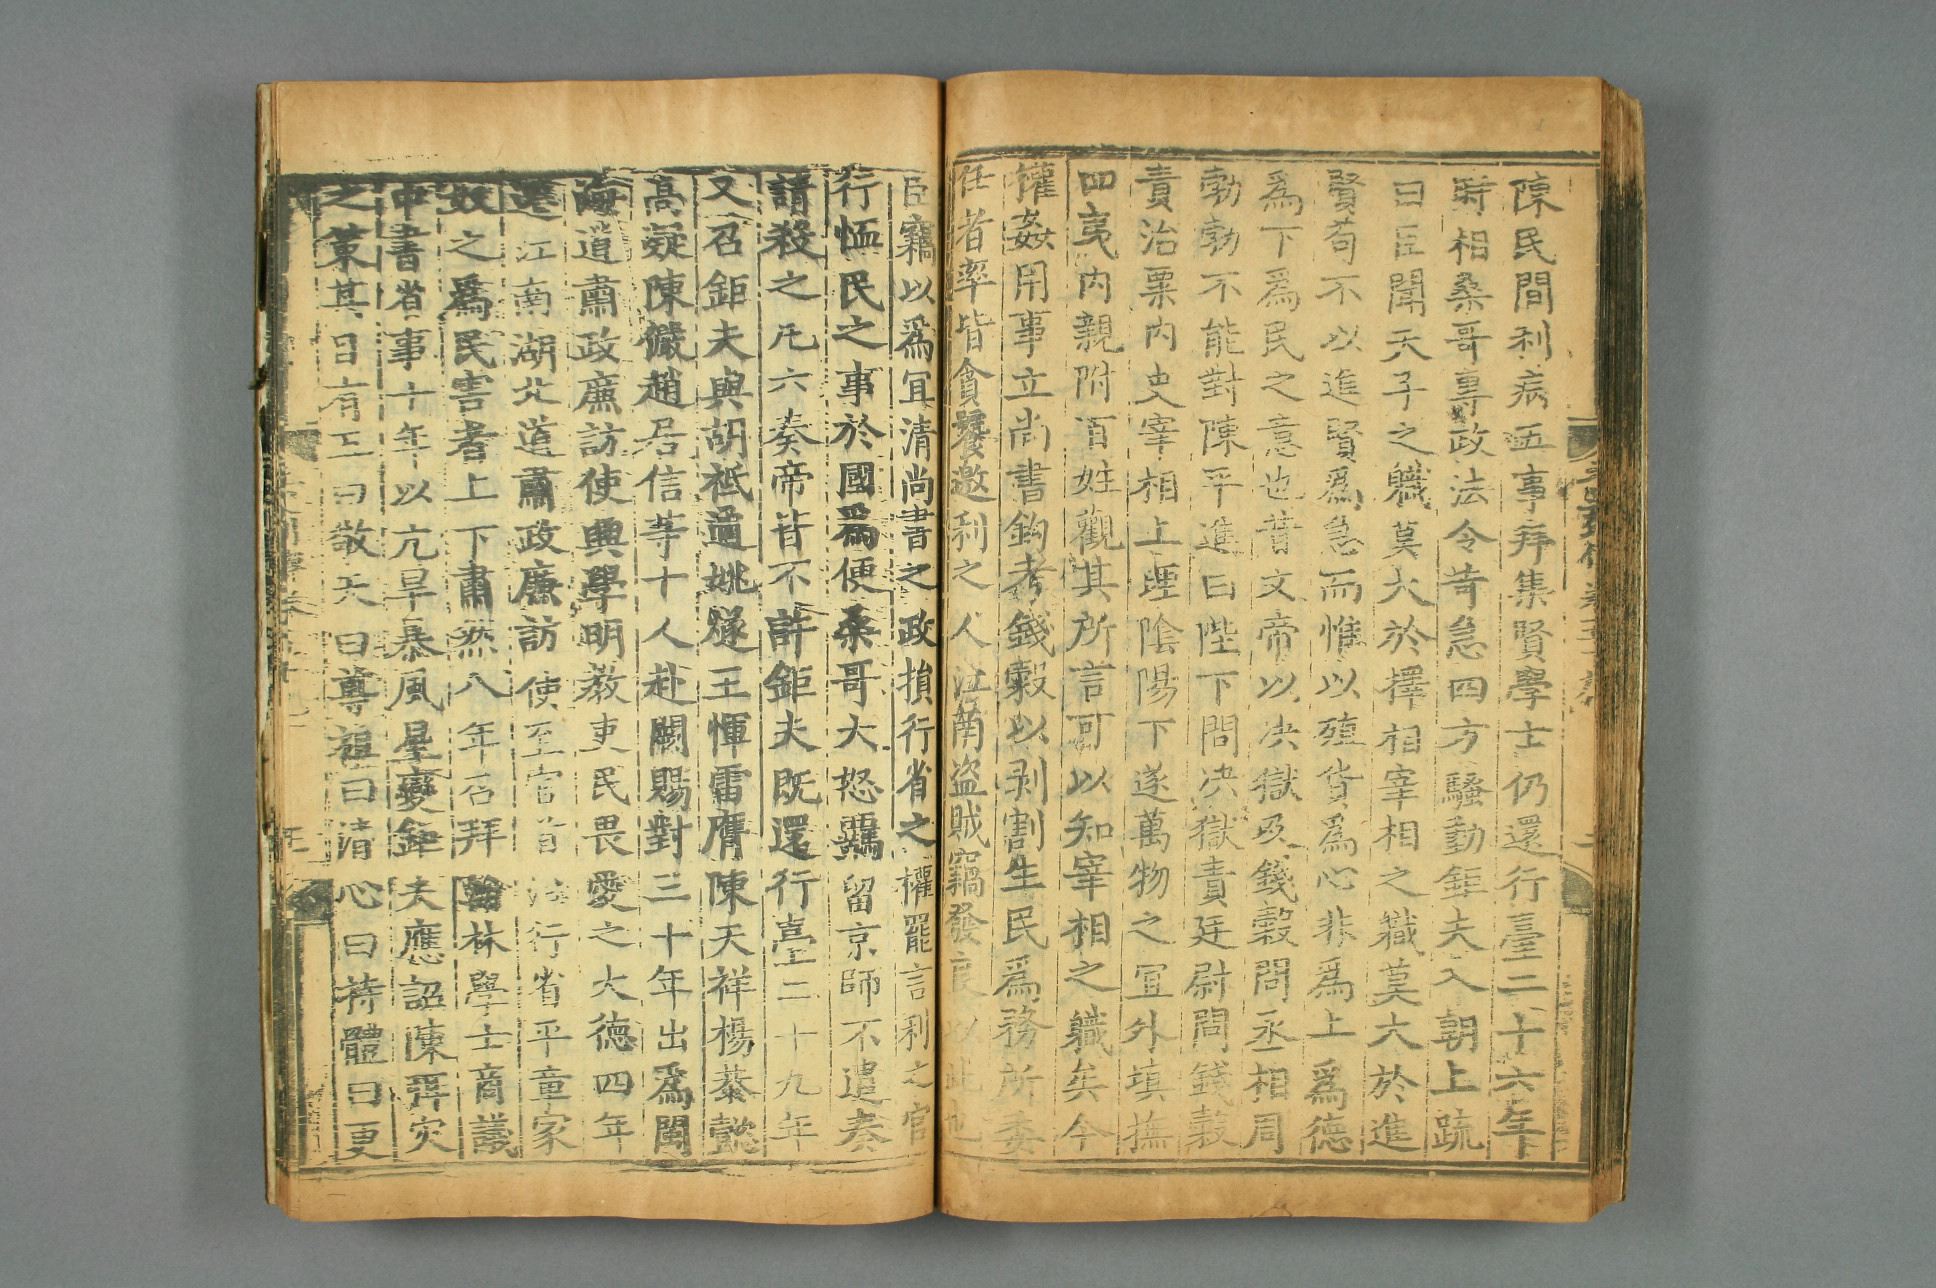 陳民間利病五事拜集賢學士仍還行臺二十六年
時相桑哥專政法令苛急四方騷動鉅夫入朝上疏
曰臣聞天子之職莫大於擇相宰相之職莫大於進
賢苟不以進賢爲急而惟以殖貨爲心非爲上爲德
爲下爲民之意也昔文帝以决獄及錢穀問丞相周
勃勃不能對陳平進曰陛下問决獄責廷尉問錢穀
責治粟内史宰相上理陰陽下遂萬物之宜外填撫
四夷内親附百姓觀其所言可以知宰相之職矣今
權姦用事立尚書鉤考錢穀以剥割生民爲務所委
任者率皆貪饕邀利之人江南盗賊竊發良以此也
臣竊以爲宜清尚書之政損行省之權罷言利之官
行恤民之事於國爲便桑哥大怒羈留京師不遣奏
請殺之凡六奏帝皆不許鉅夫既還行臺二十九年
又召鉅夫與胡祗遹姚燧王惲雷膺陳天祥楊恭懿
高凝陳儼趙居信等十人赴闕賜對三十年出爲閩
海道肅政廉訪使興學明教吏民畏愛之大德四年
遷江南湖北道肅政廉訪使至官首治行省平章家
奴之爲民害者上下肅然八年召拜翰林學士商議
中書省事十年以亢旱暴風星變鉅夫應詔陳弭灾
之策其目有五曰敬天曰尊祖曰清心曰持體曰更